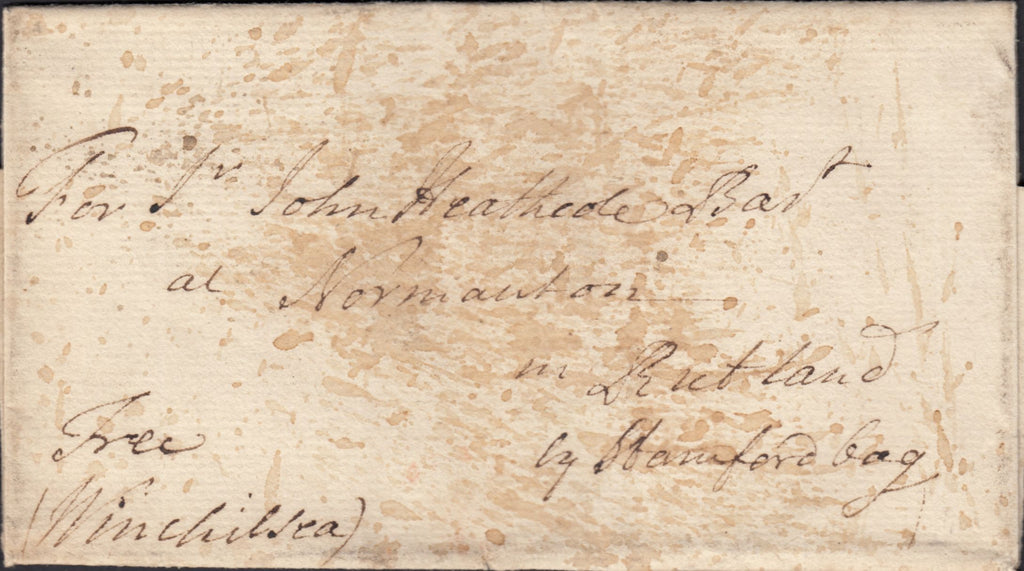 For Sr John Heathcote Bart
at Normanton
in Rutland
by Stamford bag
Free
(Winchilsea)